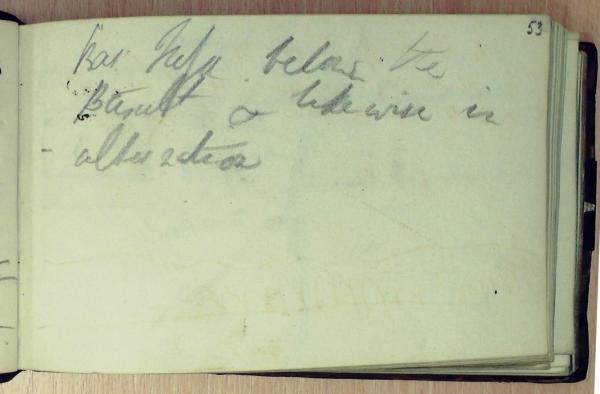 53
has Tufa below the
Basalt & likewise in
alternation